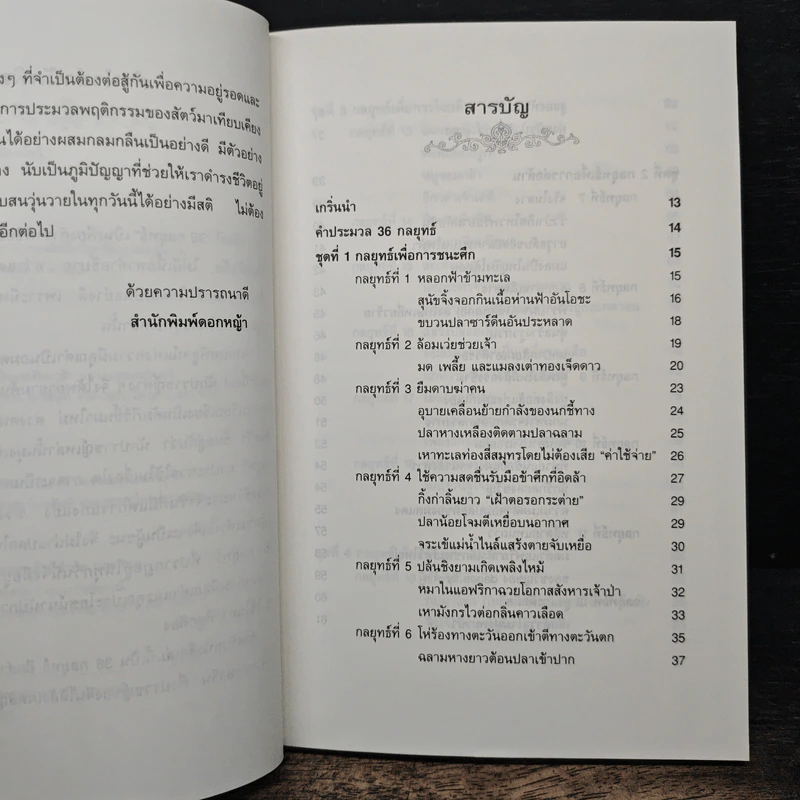 ๆ ที่จำเป็นต้องต่อสู้กันเพื่อความอยู่รอดและ
การประมวลพฤติกรรมของสัตว์มาเทียบเคียง
ได้อย่างผสมกลมกลืนเป็นอย่างดี มีตัวอย่าง
นับเป็นภูมิปัญญาที่ช่วยให้เราดำรงชีวิตอยู่
สนวุ่นวายในทุกวันนี้ได้อย่างมีสติ ไม่ต้อง
อีกต่อไป
ด้วยความปรารถนาดี
สำนักพิมพ์ดอกหญ้า
สารบัญ
เกริ่นนำ 13
คำประมวล 36 กลยุทธ์ 14
ชุดที่ 1 กลยุทธ์เพื่อการชนะศึก 15
กลยุทธ์ที่ 1 หลอกฟ้าข้ามทะเล 15
สุนัขจิ้งจอกกินเนื้อห่านฟ้าอันโอชะ 16
ขบวนปลาซาร์ดีนอันประหลาด 18
กลยุทธ์ที่ 2 ล้อมเว่ยช่วยเจ้า 19
มด เพลี้ย และแมลงเต่าทองเจ็ดดาว 20
กลยุทธ์ที่ 3 ยืมดาบฆ่าคน 23
อุบายเคลื่อนย้ายกำลังของนกชี้ทาง 24
ปลาหางเหลืองติดตามปลาฉลาม 25
เหาทะเลท่องสี่สมุทรโดยไม่ต้องเสีย “ค่าใช้จ่าย” 26
กลยุทธ์ที่ 4 ใช้ความสดชื่นรับมือข้าศึกที่อิดล้า 27
กิ้งก่าลิ้นยาว “เฝ้าตอรอกระต่าย” 29
ปลาน้อยโจมตีเหยื่อบนอากาศ 29
จระเข้แม่น้ำไนล์แสร้งตายจับเหยื่อ 30
กลยุทธ์ที่ 5 ปล้นชิงยามเกิดเพลิงไหม้ 31
หมาในแอฟริกาฉวยโอกาสสังหารเจ้าป่า 32
เหามังกรไวต่อกลิ่นคาวเลือด 33
กลยุทธ์ที่ 6 โห่ร้องทางตะวันออกเข้าตีทางตะวันตก 35
ฉลามหางยาวต้อนปลาเข้าปาก 37